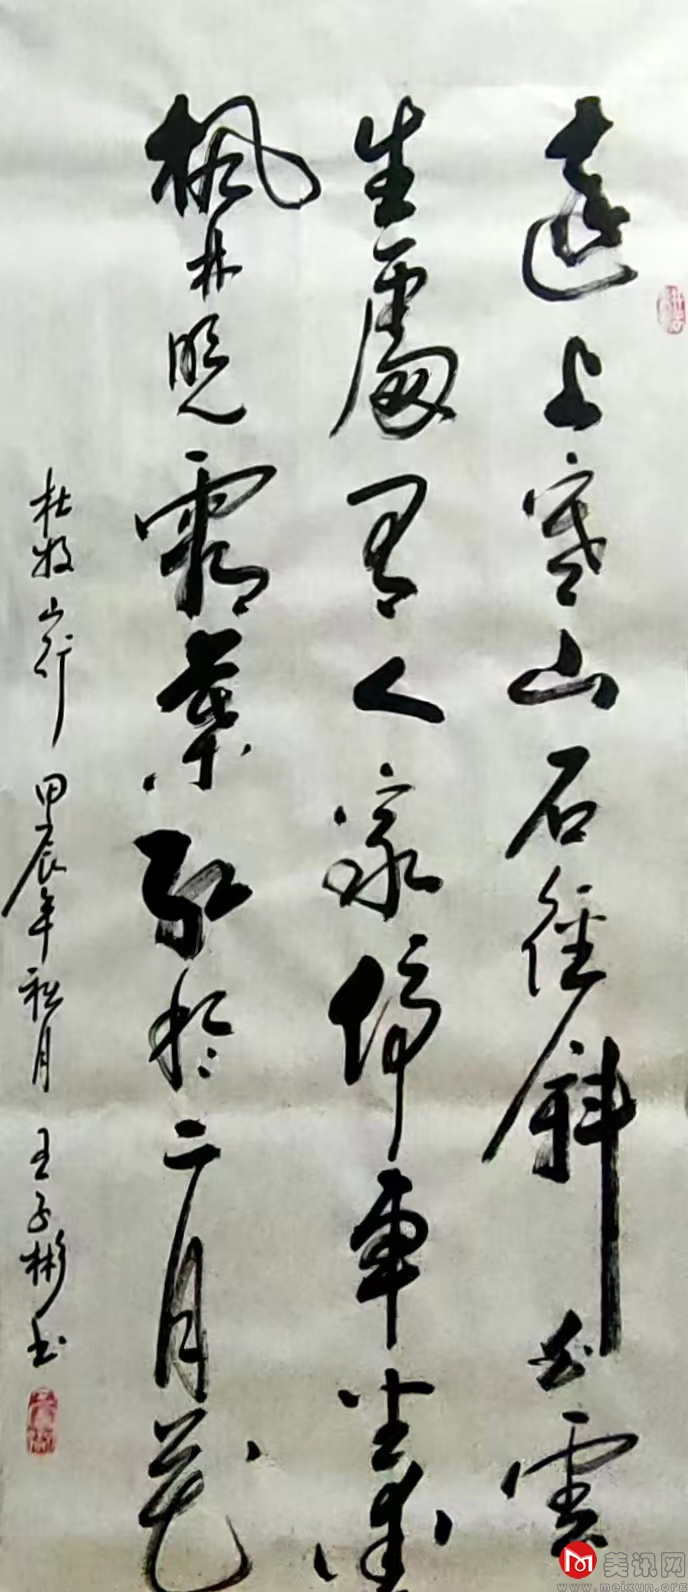 遠上寒山石徑斜白雲
生處有人家停車坐愛
楓林晚霜葉紅於二月花
杜牧山行 甲辰年 月 王子彬书
美讯网
www.meixun.org